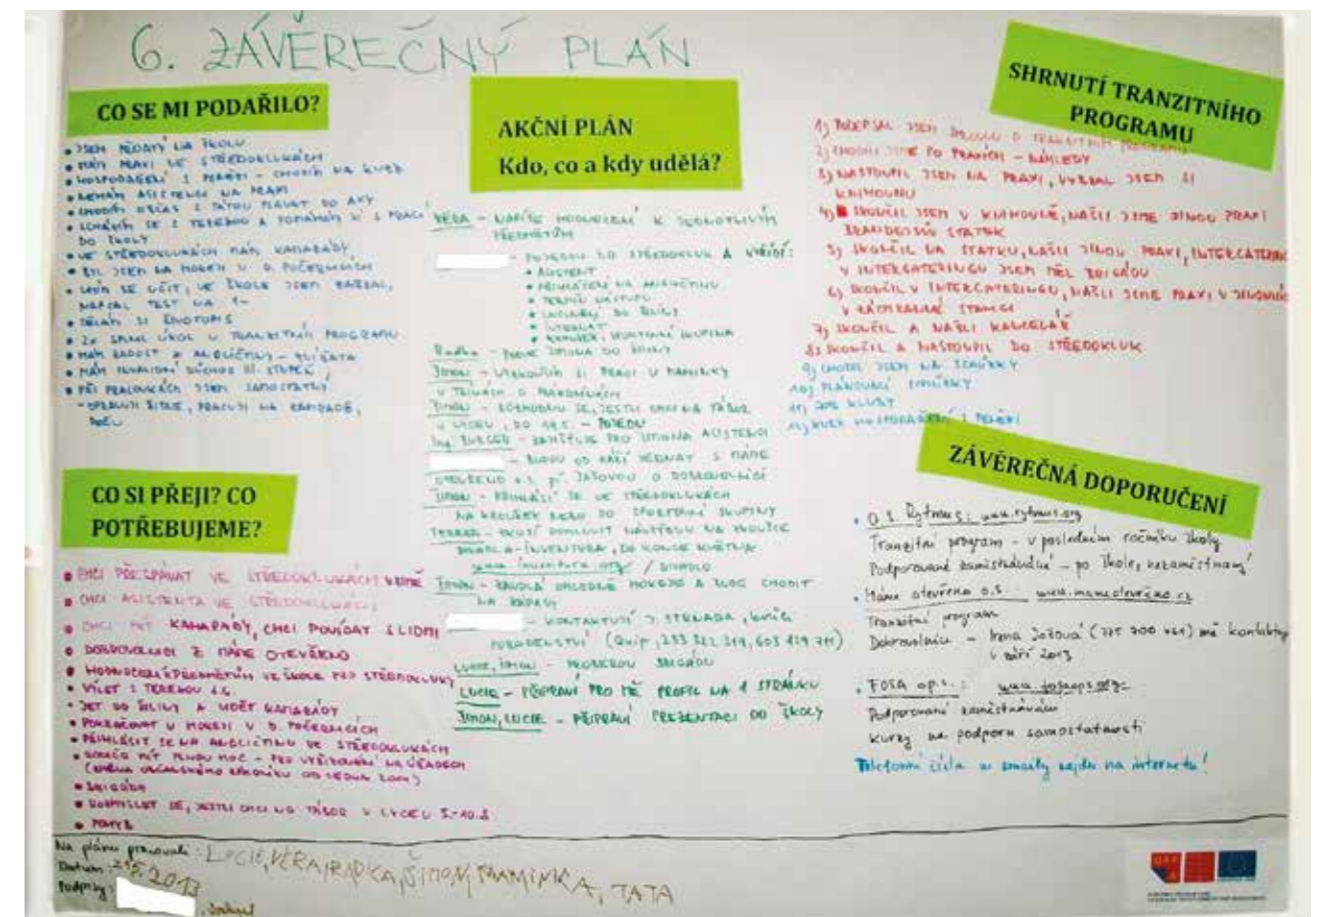 6. ZÁVĚREČNÝ PLÁN
CO SE MI PODAŘILO?
• JSEM PŘIJATÝ NA ŠKOLU
• MÁM PRAXI VE STŘEDOKLUKÁCH
• HOSPODAŘENÍ S PENĚZI - CHODÍM NA KURZ
• NEMÁM ASISTENCI NA PRAXI
• CHODÍM OBČAS S TÁTOU PLAVAT DO AXY
• SCHÁZÍM SE S TEREZOU A POMÁHÁM SI S PRACÍ
DO ŠKOLY
• VE STŘEDOKLUKÁCH MÁM KAMARÁDY
• BYL JSEM NA HOKEJI V D. POČERNICÍCH
• UMÍM SE UČIT, VE ŠKOLE JSEM
NAPSAL TEST NA 1-
• DĚLÁM SI ŽIVOTOPIS
• 2x SPLNIL ÚKOL V TRANZITNÍM PROGRAMU
• MÁM RADOST Z ANGLIČTINY
• MÁM INVALIDNÍ DŮCHOD III. STUPĚ
• PŘI PRACOVKÁCH JSEM SAMOSTATNÝ
PRACUJI NA ZAHRADĚ,
CO SI PŘEJI? CO
POTŘEBUJEME?
• CHCI PŘESPÁVAT VE STŘEDOKLUKÁCH
• CHCI ASISTENTA VE STŘEDOKLUKÁCH
• CHCI MÍT KAMARÁDY, CHCI POVÍDAT S LIDMI
• DOBROVOLNICI Z MÁME OTEVŘENO
• HODNOCENÍ K PŘEDMĚTŮM VE ŠKOLE PRO STŘEDOKLUKY
• VÝLET S TEREZOU
• JET DO ŠILINY A VIDĚT KAMARÁDY
• POKRAČOVAT V HOKEJI V D. POČERNICÍCH
• PŘIHLÁSIT SE NA ANGLIČTINU VE STŘEDOKLUKÁCH
MÍT PLNOU MOC - PRO VYŘIZOVÁNÍ NA ÚŘADECH
OBČANSKÉHO ZÁKONÍKU OD LEDNA
• BRIGÁDA
• ROZMYSLET SE, JESTLI CHCI NA TÁBOR V LYCEU 5.-10.8.
• POHYB
AKČNÍ PLÁN
Kdo, co a kdy udělá?
VĚRA - NAPÍŠE HODNOCENÍ K JEDNOTLIVÝM
PŘEDMĚTŮM
- POJEDOU DO STŘEDOKLUK A VYŘÍDÍ:
• ASISTENT
• PŘIHLÁŠENÍ NA ANGLIČTINU
• TERMÍN NÁSTUPU
• INTERNÁT
• KROUŽEK, SPORTOVNÍ SKUPINA
Radka - POZVE ŠIMONA DO ŠILINY
ŠIMON - VYZKOUŠÍM SI PRACI U MAMINKY
ŠIMON - ROZHODNU SE, JESTLI CHCI NA TÁBOR
V LYCEU, DO
Ing. BURGER - ZAMĚŘUJE PRO ŠIMONA ASISTENCI
- BUDOU OD ZÁŘÍ JEDNAT S MÁME
OTEVŘENO o.s. pí. JAŠOVOU O DOBROVOLNICI
ŠIMON - PŘIHLÁSÍ SE VE STŘEDOKLUKÁCH
NA KROUŽEK NEBO DO SPORTOVNÍ SKUPINY
TEREZA - ZKUSÍ DOMLUVIT NÁVŠTĚVU NA ZKOUŠCE
DIVADLA - INVENTURA, DO KONCE KVĚTNA
www.inventura.org / DIVADLO
ŠIMON - ZAVOLÁ OHLEDNĚ HOKEJE A BUDE CHODIT
NA ZÁPASY
- KONTAKTUJÍ
PORADENSTVÍ (Quip, 233 322 314, 603 429 711)
LUCIE, ŠIMON - PROBEROU BRIGÁDU
LUCIE - PŘIPRAVÍ PRO MĚ PROFIL NA 1 STRÁNKU
ŠIMON, LUCIE - PŘIPRAVÍ PREZENTACI DO ŠKOLY
SHRNUTÍ TRANZITNÍHO
PROGRAMU
1) PODEPSAL JSEM SMLOUVU O TRANZITNÍM PROGRAMU
2) CHODILI JSME PO PRAXÍCH - NÁHLEDY
3) NASTOUPIL JSEM NA PRAXI, VYBRAL JSEM SI
KNIHOVNU
4) SKONČIL JSEM V KNIHOVNĚ, NAŠLI JSME JINOU PRAXI
BRANDEJSŮV STATEK
5) SKONČIL NA STATKU, NAŠLI JINOU PRAXI, INTERCATERING
V INTERCATERINGU JSEM MĚL BRIGÁDU
6) SKONČIL V INTERCATERINGU, NAŠLI JSME PRAXI V JINONICÍCH
V ZÁCHRANNÉ STANICI
7) SKONČIL A NAŠLI KANCELÁŘ
8) SKONČIL A NASTOUPIL DO STŘEDOKLUK
9) CHODIL JSEM NA SCHŮZKY
10) PLÁNOVACÍ SCHŮZKY
11) JOB KLUBY
12) KURZ HOSPODAŘENÍ S PENĚZI
ZÁVĚREČNÁ DOPORUČENÍ
• O.S. Rytmus: www.rytmus.org
Tranzitní program - v posledním ročníku školy
Podporované zaměstnávání - po škole, nezaměstnaný
• Máme otevřeno o.s. www.mameotevreno.cz
Tranzitní program
Dobrovolnice - Irena Jašová (775 200 461) mě kontaktuje
v září 2013
• FOSA o.p.s.: www.fosaops.org
Podporované zaměstnávání
Kurzy na podporu samostatnosti
Telefonní čísla a emaily najdu na internetu!
Na plánu pracovali: LUCIE, VĚRA, RADKA, ŠIMON, MAMINKA, TATA
Datum: 21.5.2013
Podpisy: